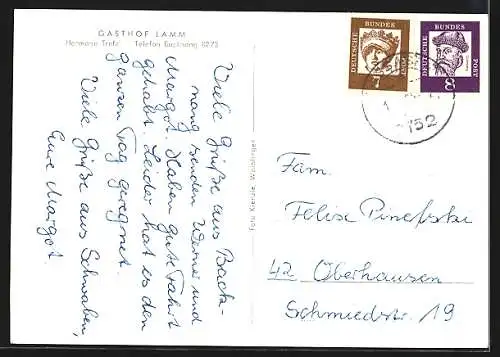 GASTHOF LAMM
Hermann Trefz Telefon Backnang 8273
Viele Grüße aus Back-
nang senden Werner und
Margot. Haben gute Fahrt
gehabt. Leider hat es den
ganzen Tag geregnet.
Viele Grüße aus Schwaben,
Eure Margot.
Foto Kienzle, Waiblingen
DEUTSCHE BUNDESPOST
7
DEUTSCHE BUNDESPOST
8
7152
Fam.
Felix
42 Oberhausen
Schmiedstr. 19